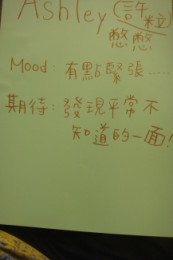 Ashley (許
憋憋
Mood: 有點緊張.....
期待: 發現平常不
知道的一面!